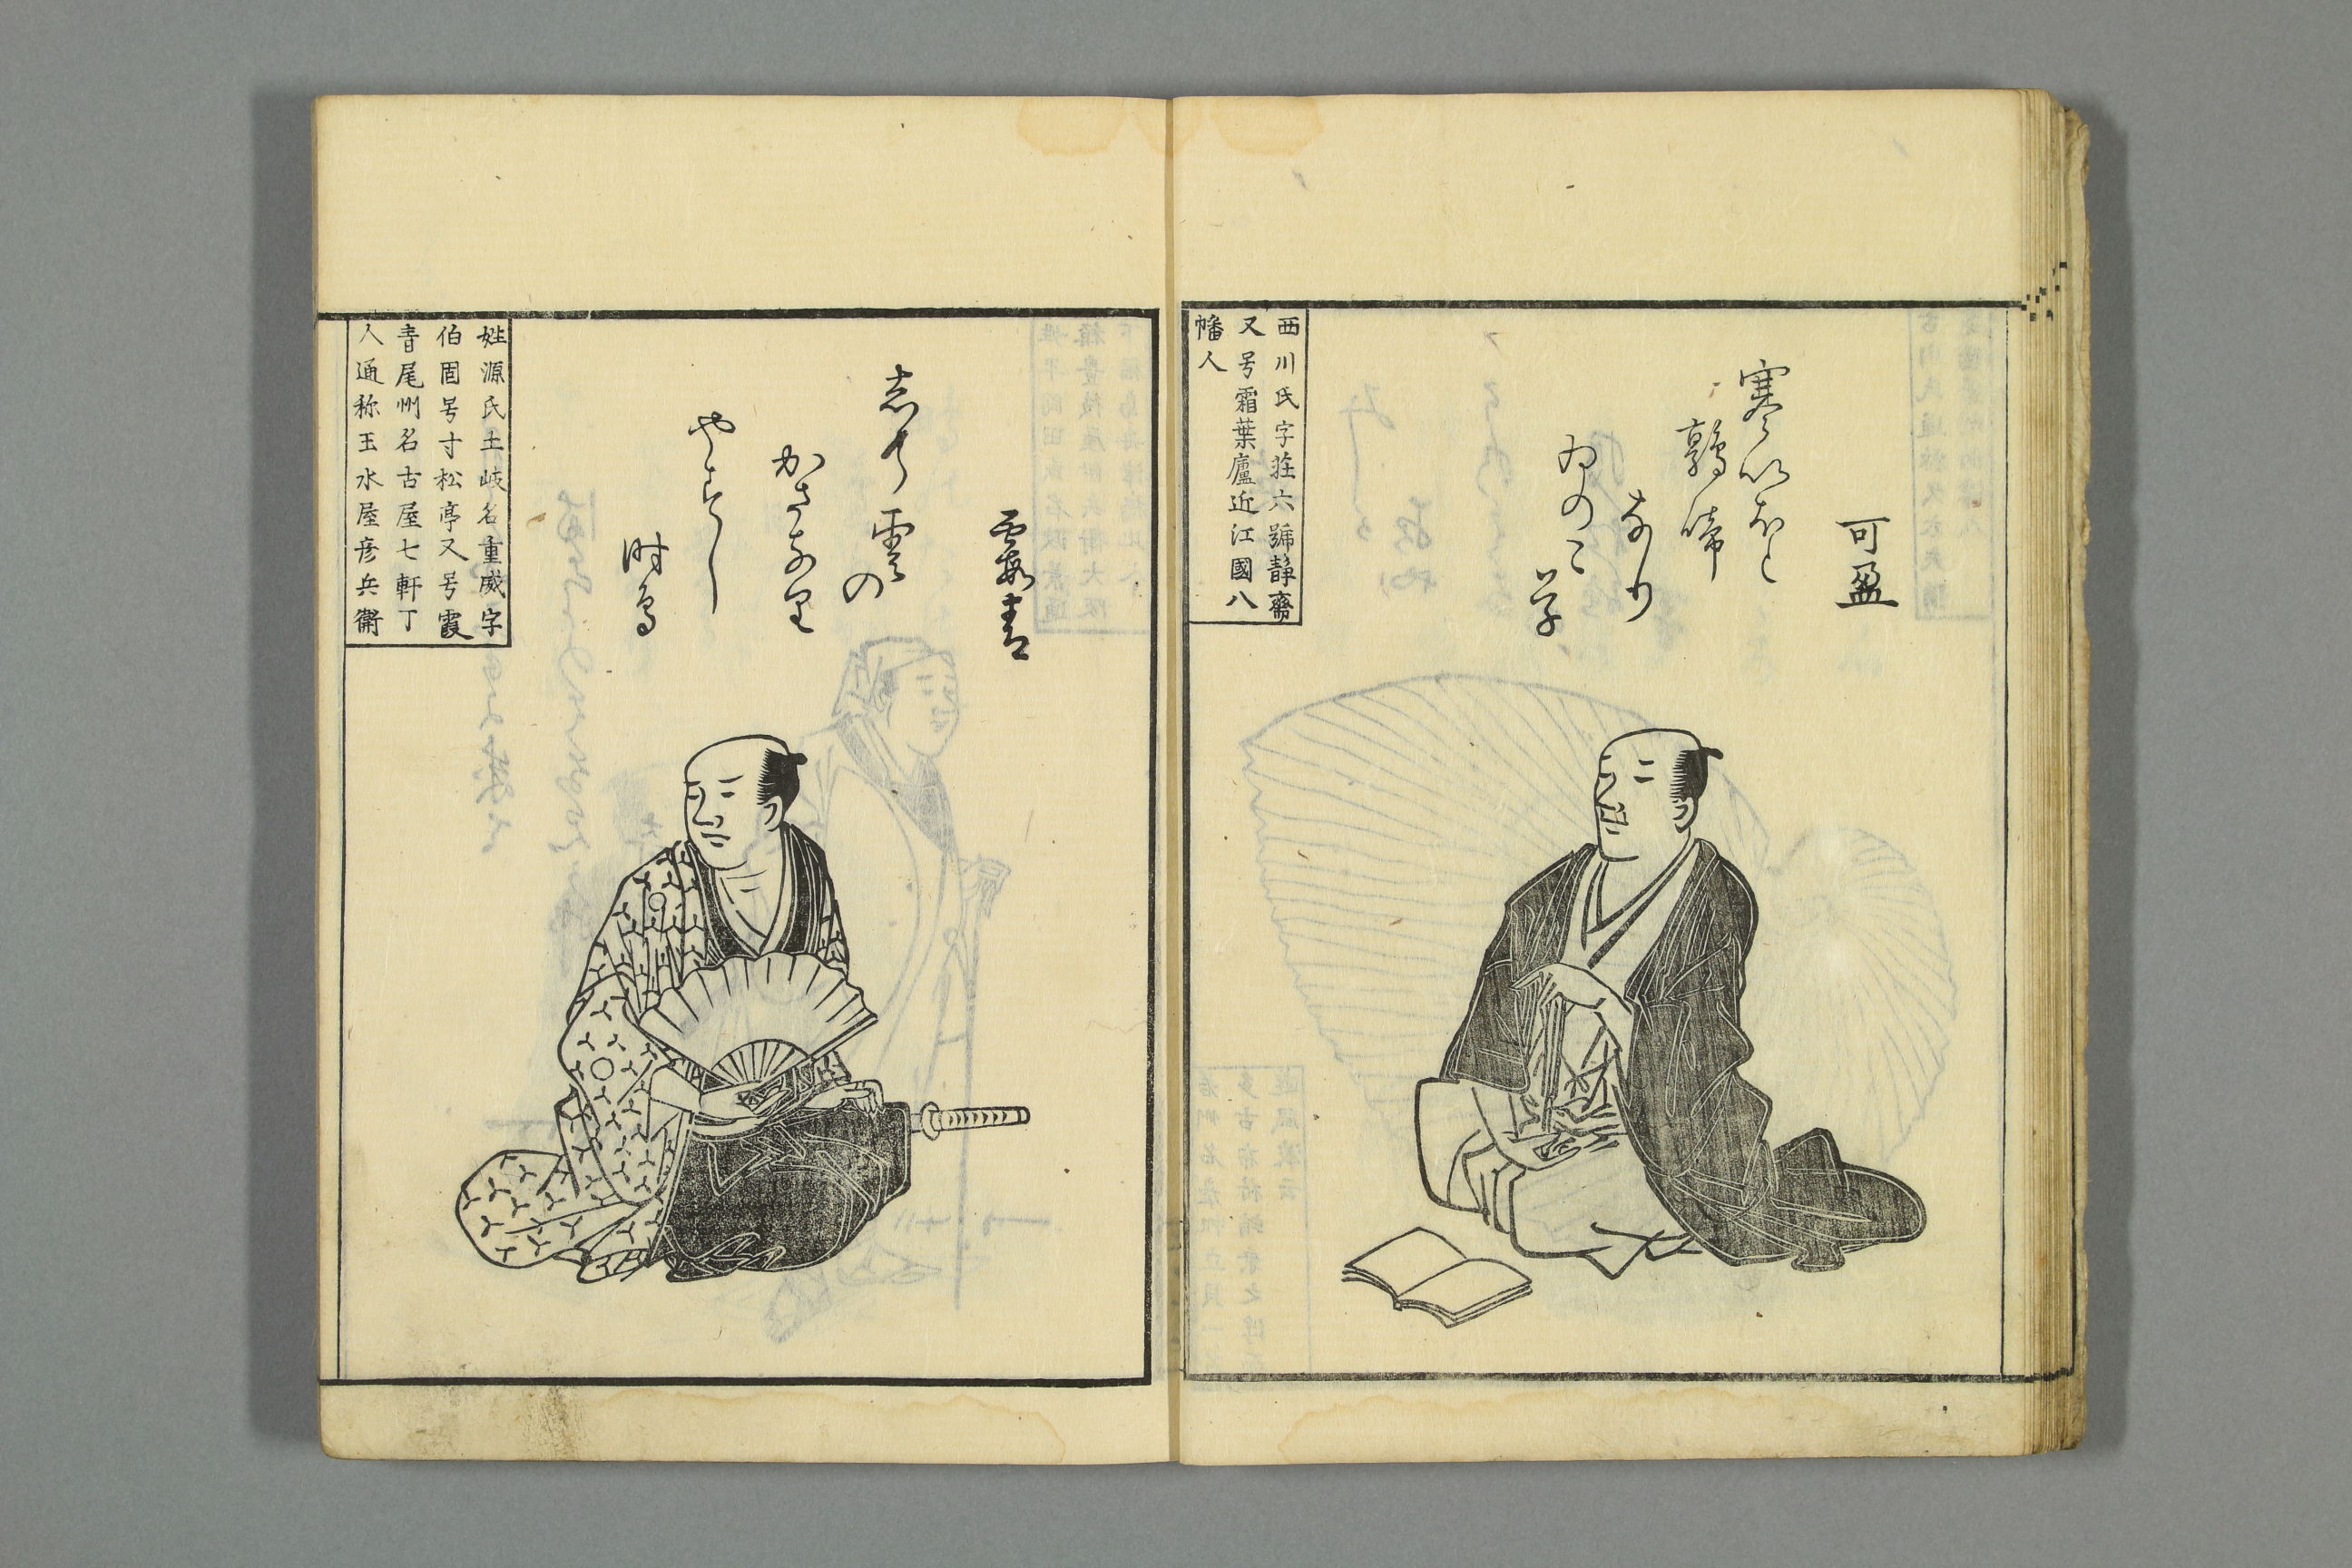 可盈
鶉啼
西川氏字荘六號静齋
又号霜葉廬近江國八
幡人
霞青
志ら雲の
かさなり
やすし
時鳥
姓源氏土岐名重威字
伯固号寸松亭又号霞
青尾州名古屋七軒丁
人通称玉水屋彦兵衛